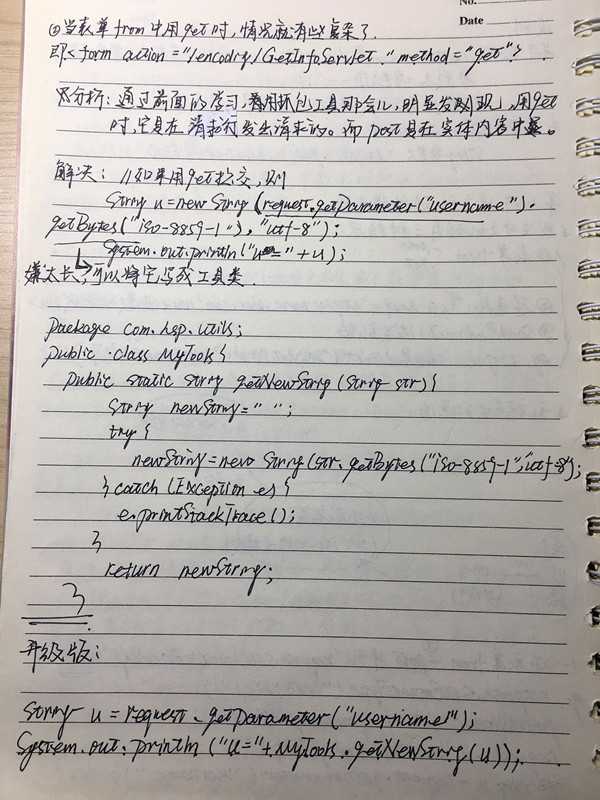 No.
Date
②当表单from中用get时,情况就有些复杂了.
即<form action="/encodrg/GetInfoServlet." method="get">
分析:通过前面的学习,看用抓包工具那会儿,明显发现,用get
时,它是在请求行发出请求的。而post是在实体内容中。
解决: //如果用get提交,则
String u=new String(request.getParameter("username").
getBytes("iso-8859-1"),"utf-8");
System.out.println("u="+u);
嫌太长,可以将它写成工具类.
package com.hsp.utils;
public class MyTools{
public static string getNewString(String str){
String newString=" ";
try{
newString=new String(str.getBytes("iso-8859-1","utf-8");
}catch(Exception e){
e.printStackTrace();
}
return newString;
}
升级版:
String u=request.getparameter("username");
System.out.println("u="+MyTools.getNewString(u));